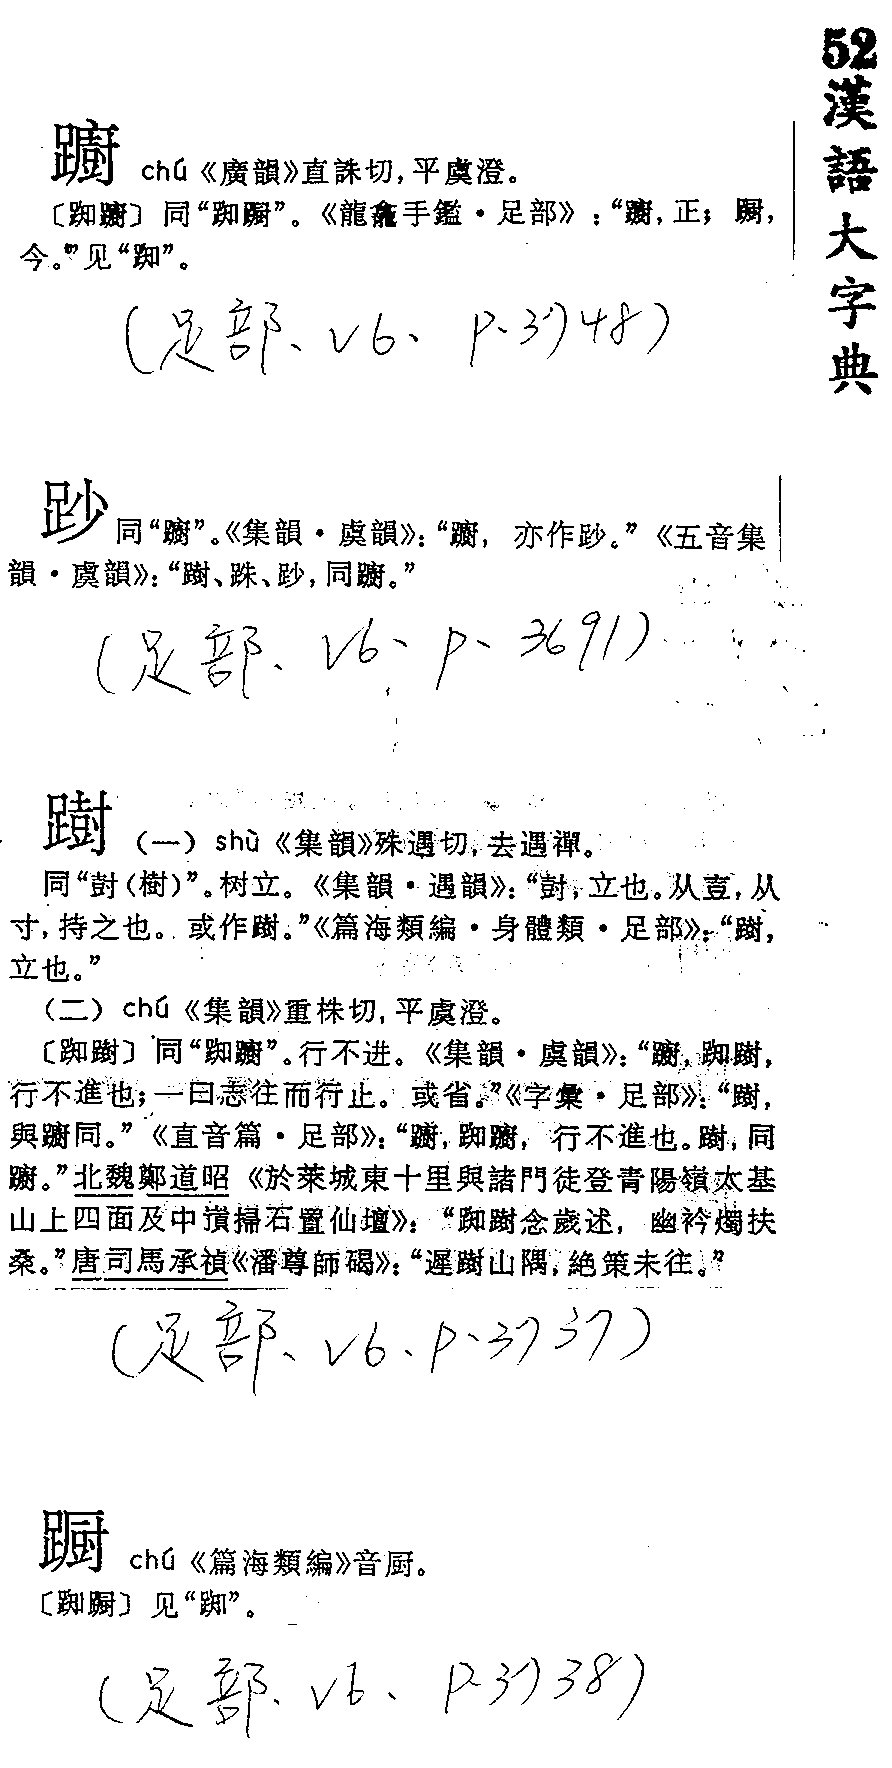 52漢語大字典
躕 chú《廣韻》直誅切，平虞澄。
〔踟躕〕同“踟蹰”。《龍龕手鑑·足部》：“躕，正；蹰，
今。”见“踟”。
（足部、V6、P.3748）
䟞 同“躕”。《集韻·虞韻》：“躕，亦作䟞。”《五音集
韻·虞韻》：“䠧、跦、䟞，同躕。”
（足部、V6、P、3691）
䠧（一）shù《集韻》殊遇切，去遇禪。
同“尌（樹）”。树立。《集韻·遇韻》：“尌，立也。从壴，从
寸，持之也。或作䠧。”《篇海類編·身體類·足部》：“䠧，
立也。”
（二）chú《集韻》重株切，平虞澄。
〔踟䠧〕同“踟躕”。行不进。《集韻·虞韻》：“躕，踟䠧，
行不進也；一曰志往而行止。或省。”《字彙·足部》：“䠧，
與躕同。”《直音篇·足部》：“躕，踟躕，行不進也。䠧，同
躕。”北魏鄭道昭《於萊城東十里與諸門徒登青陽嶺太基
山上四面及中嵿掃石置仙壇》：“踟䠧念歲述，幽衿燭扶
桑。”唐司馬承禎《潘尊師碣》：“遲䠧山隅，絶策未往。”
（足部、V6、P、3737）
蹰 chú《篇海類編》音厨。
〔踟蹰〕见“踟”。
（足部、V6、P.3738）